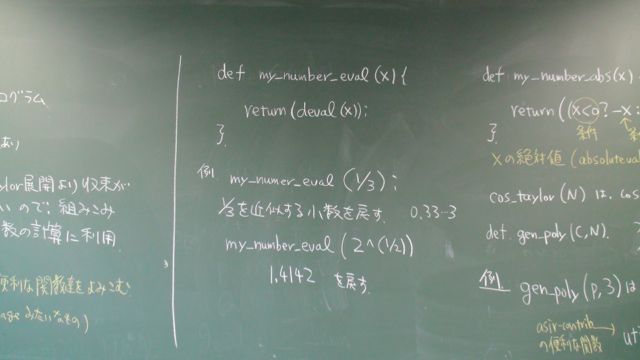 ログラム
より
lor展開より収束が
いので、組みこみ
数の計算に利用
便利な関数達をよみこむ
みたいなもの)
def my_number_eval(x){
return(deval(x));
}
例 my_numer_eval(1/3);
1/3を近似する小数を戻す. 0.33…3
my_number_eval(2^(1/2))
1.4142 を戻す.
def my_number_abs(x)
return((x<0? -x:
条件
}
xの絶対値(absolute val
cos_taylor(N) は、cos
def gen_poly(C,N).
例 gen_poly(P,3)は
asir-contrib
の便利な関数
ut